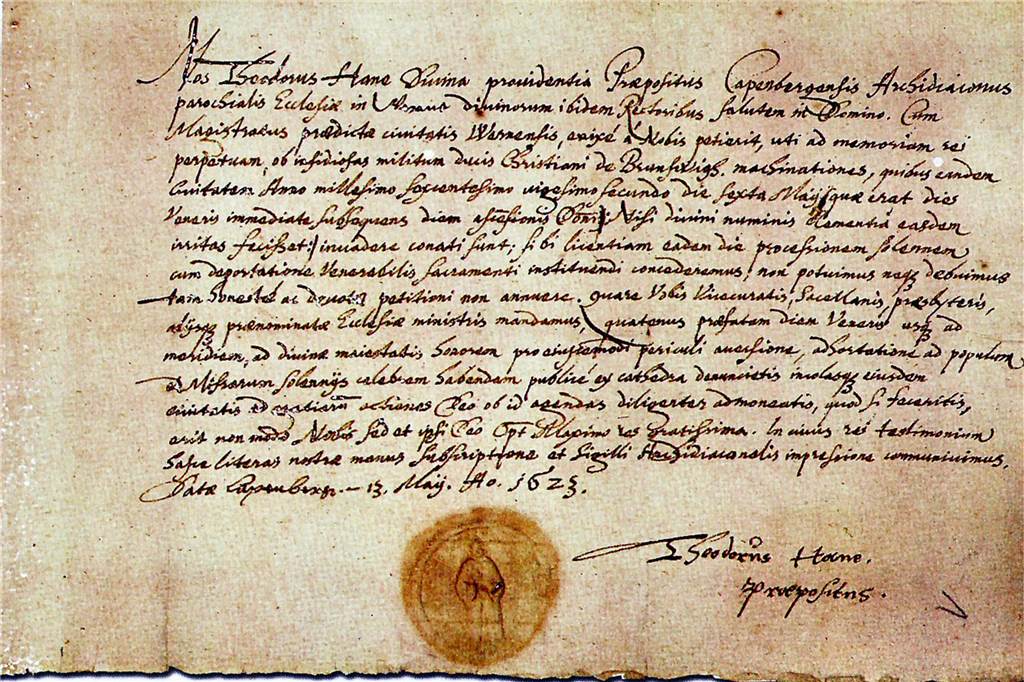 Nos Theodorus Hane Divina providentia Præpositus Capenbergensis Archidiaconus
parochialis Ecclesiæ in Werne divinorum ibidem Rectoribus Salutem in Domino. Cum
Magistratus prædictæ civitatis Wernensis, enixè a Nobis petierit, uti ad memoriam rei
perpetuam, ob insidiosas militum ducis Christiani de Brunswigh. machinationes, quibus eandem
Civitatem Anno millesimo sexcentesimo vigesimo secundo die sexta Maÿ (quæ erat dies
Veneris immediate subsequens diem ascēsionis Domi) Nisi divini numinis Clementia easdem
irritas fecisset:/ invadere conati sunt; sibi licentiam eadem die processionem solennem
cum deportatione Venerabilis Sacramenti instituendi concederemus, non potuimus neqȝ debuimus
tam honestè ac devotæ petitioni non annuere. Quare Vobis Vicecuratis, Sacellanis, præsbyteris,
alÿsqȝ prænominatæ Ecclesiæ ministris mandamus, quatenus præfatam diem Veneris usqȝ ad
meridiem, ad divinæ maiestatis honorem pro eiuscemodi periculi aversione, adhortatione ad populum
et Missarum solennÿs celebrem habendam publicè ex cathedra denuncietis incolasqȝ eiusdem
civitatis ad gratiarum actiones Deo ob id agendas diligenter admoneatis, quod si feceritis,
erit non modo Nobis sed et ipsi Deo Opt Maximo res gratissima. In cuius rei testimonium
hasce literas nostræ manus subscriptione et sigilli Archidiaconalis impressione communivimus.
Datæ Capenbergæ. - 13. Maÿ. Ao. 1623.
Theodorus Hane.
Præpositus.